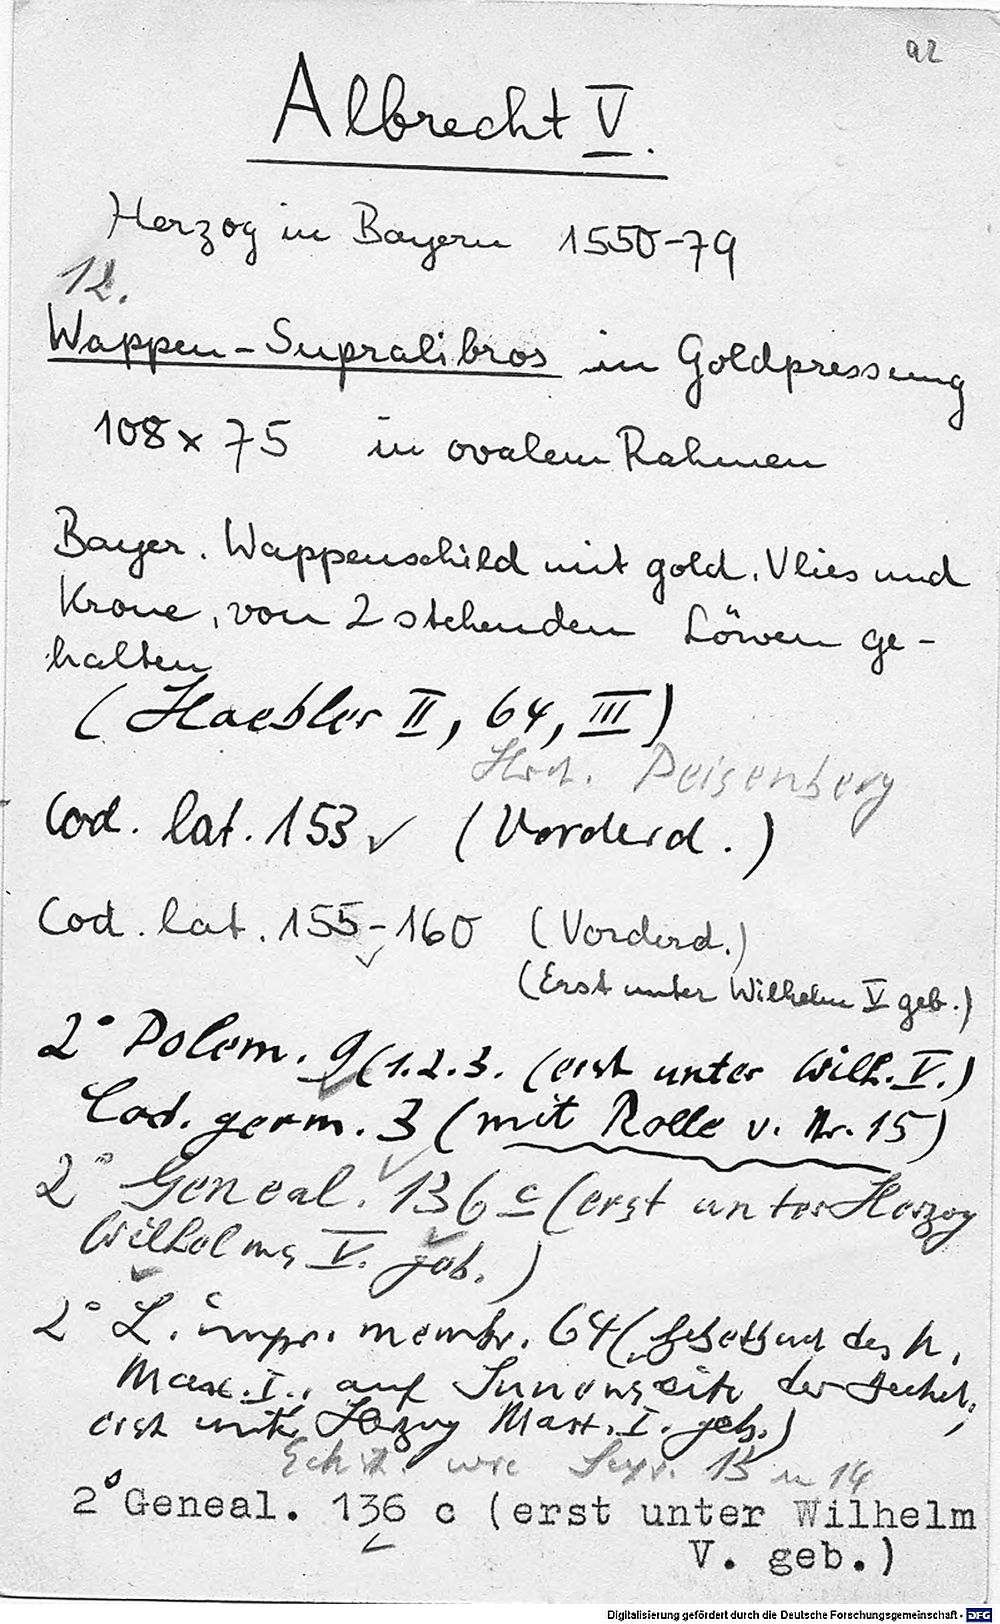 92
Albrecht V.
Herzog in Bayern 1550-79
12.
Wappen-Supralibros in Goldpressung
108 x 75 in ovalem Rahmen
Bayer. Wappenschild mit gold. Vlies und
Krone, von 2 stehenden Löwen ge-
halten
(Haebler II, 64, III)
Peisenberg
Cod. lat. 153 ✓ (Vorderd.)
Cod. lat. 155-160 (Vorderd.)
(Erst unter Wilhelm V geb.)
2° Polem. 9 (1.2.3. (erst unter Wilh. V.)
Cod. germ. 3 (mit Rolle v. Nr. 15)
2° Geneal. 136 c (erst unter Herzog
Wilhelms V. geb.)
2° L. impr. membr. 64 (Gebetbuch des K.
Max. I., auf Innenseite der Deckel,
erst unter Herzog Max. I. geb.)
wie Supr. 13 u 14
2° Geneal. 136 c (erst unter Wilhelm
V. geb.)
Digitalisierung gefördert durch die Deutsche Forschungsgemeinschaft - DFG